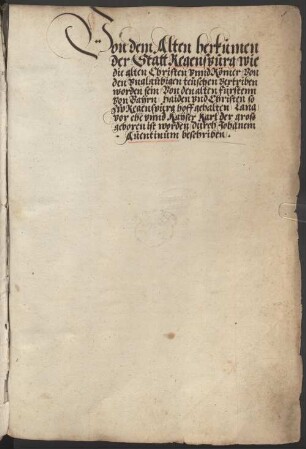 Von dem Alten herkumen
der Statt Regenspurg wie
die alten Christen vnnd Römer Von
den vnglaubigen teüschen Vertriben
worden sein Von den alten fürstenn
von Bayrn haiden vnd Christen so
zw Regenspurg hoff gehalten Lang
vor ehe vnnd Kayser Karl der groß
geboren ist worden durch Johanem
Auentinum beschriben